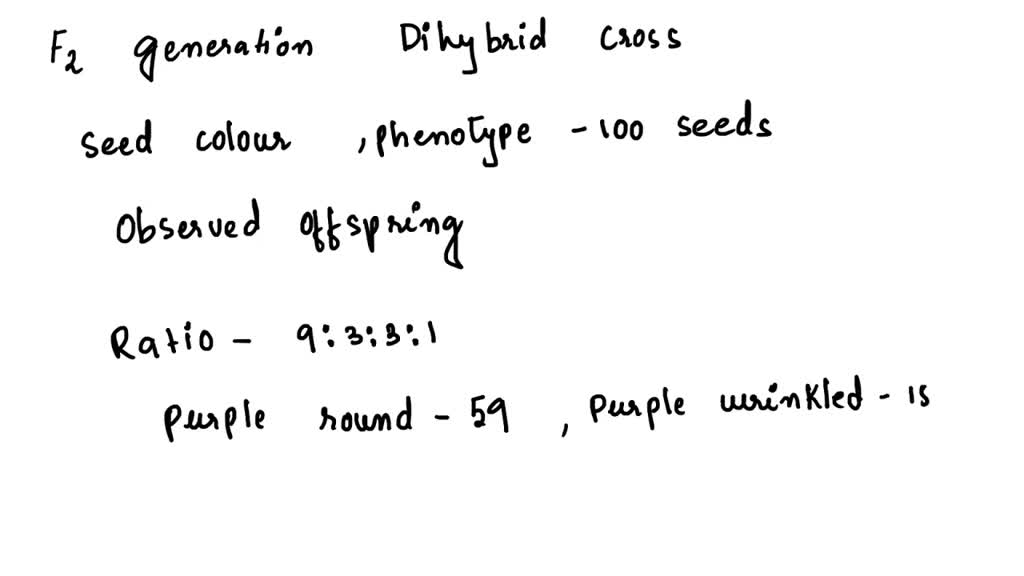 F2 generation Dihybrid cross
seed colour , phenotype - 100 seeds
Observed offspring
Ratio - 9:3:3:1
Purple round - 59 , Purple wrinkled - 15